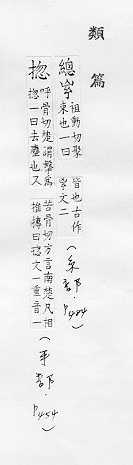 類篇
總 祖動切聚
束也一曰
皆也古作
文二
(糸部·P484)
揔 呼骨切楚謂擊為
揔一曰去塵也又
苦骨切方言南楚凡相
推摶曰揔文一重音一
(手部·P454)